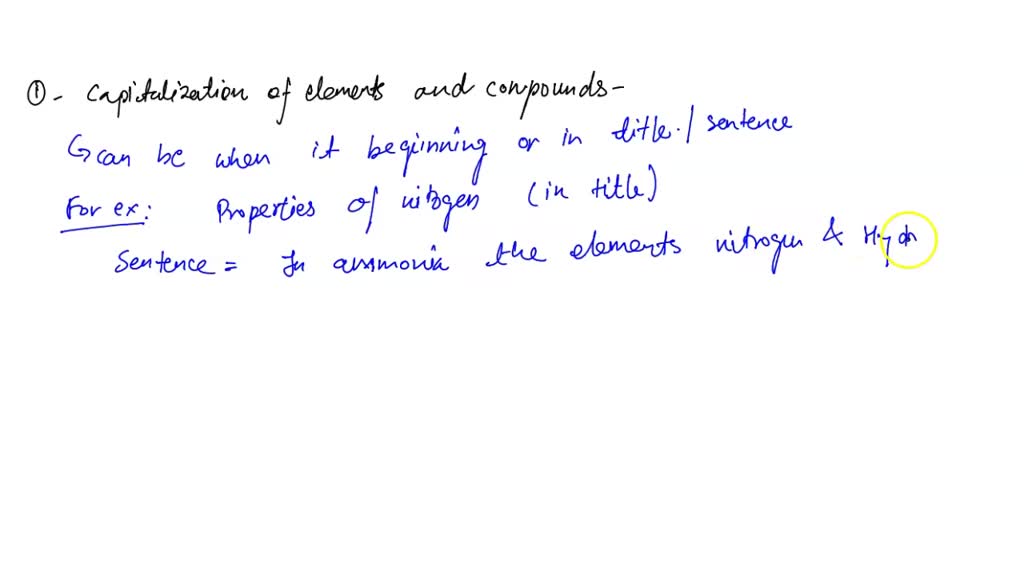 ① - Capitalization of elements and compounds -
↳ can be when it beginning or in title. / sentence
For ex: Properties of nitrogen (in title)
Sentence = In ammonia the elements nitrogen & Hydr